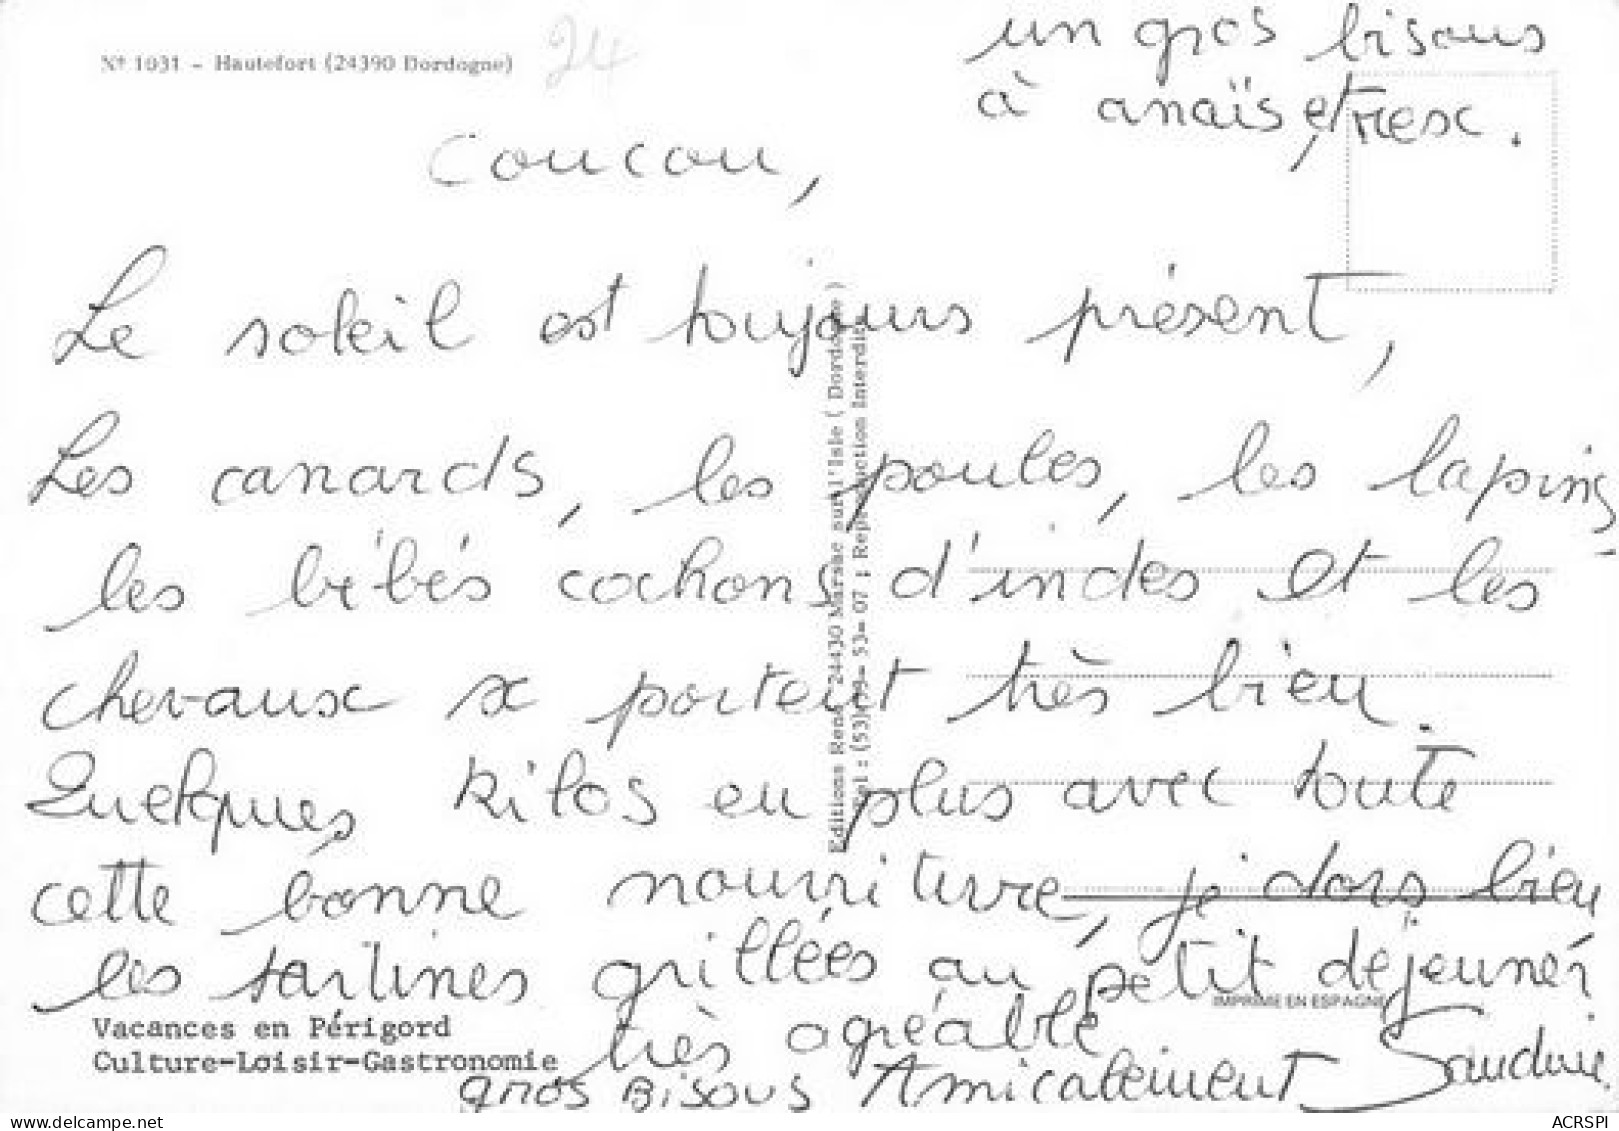 un gros bisous
à anaïs, et
N° 1031 - Hautefort (24390 Dordogne)
24
Coucou,
Le soleil est toujours présent,
Les canards, les poules, les lapins,
les bébés cochons d'indes et les
chevaux se portent très bien.
Quelques kilos en plus avec toute
cette bonne nourriture, je dors bien
les tartines grillées au petit dejeuner
très agréable
gros Bisous Amicalement Sandrine
Vacances en Périgord
Culture-Loisir-Gastronomie
Editions René 24430 Marsac sur l'Isle ( Dordogne )
Tel : (53) 09- 53- 07 ; Reproduction Interdite
IMPRIME EN ESPAGNE
www.delcampe.net
ACRSPI